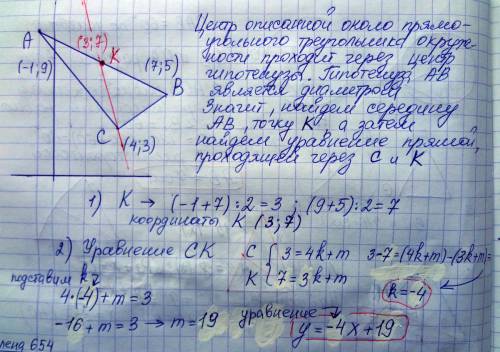 A
(3;7)
K
(-1;9)
(7;5)
B
C
(4;3)
Центр описанной около прямо-
угольного треугольника окруж-
ности проходит через центр
гипотенузы. Гипотенуза АВ
является диаметром
Значит, найдем середину
АВ, точку К а затем
найдем уравнение прямой,
проходящей через С и К
1) K → (-1+7):2=3 ; (9+5):2=7
координаты K (3;7)
2) Уравнение СК
C { 3=4k+m
K { 7=3k+m
3-7=(4k+m)-(3k+m)=
k=-4
подставим k
4·(-4)+m=3
-16+m=3 → m=19
уравнение
y=-4x+19
654